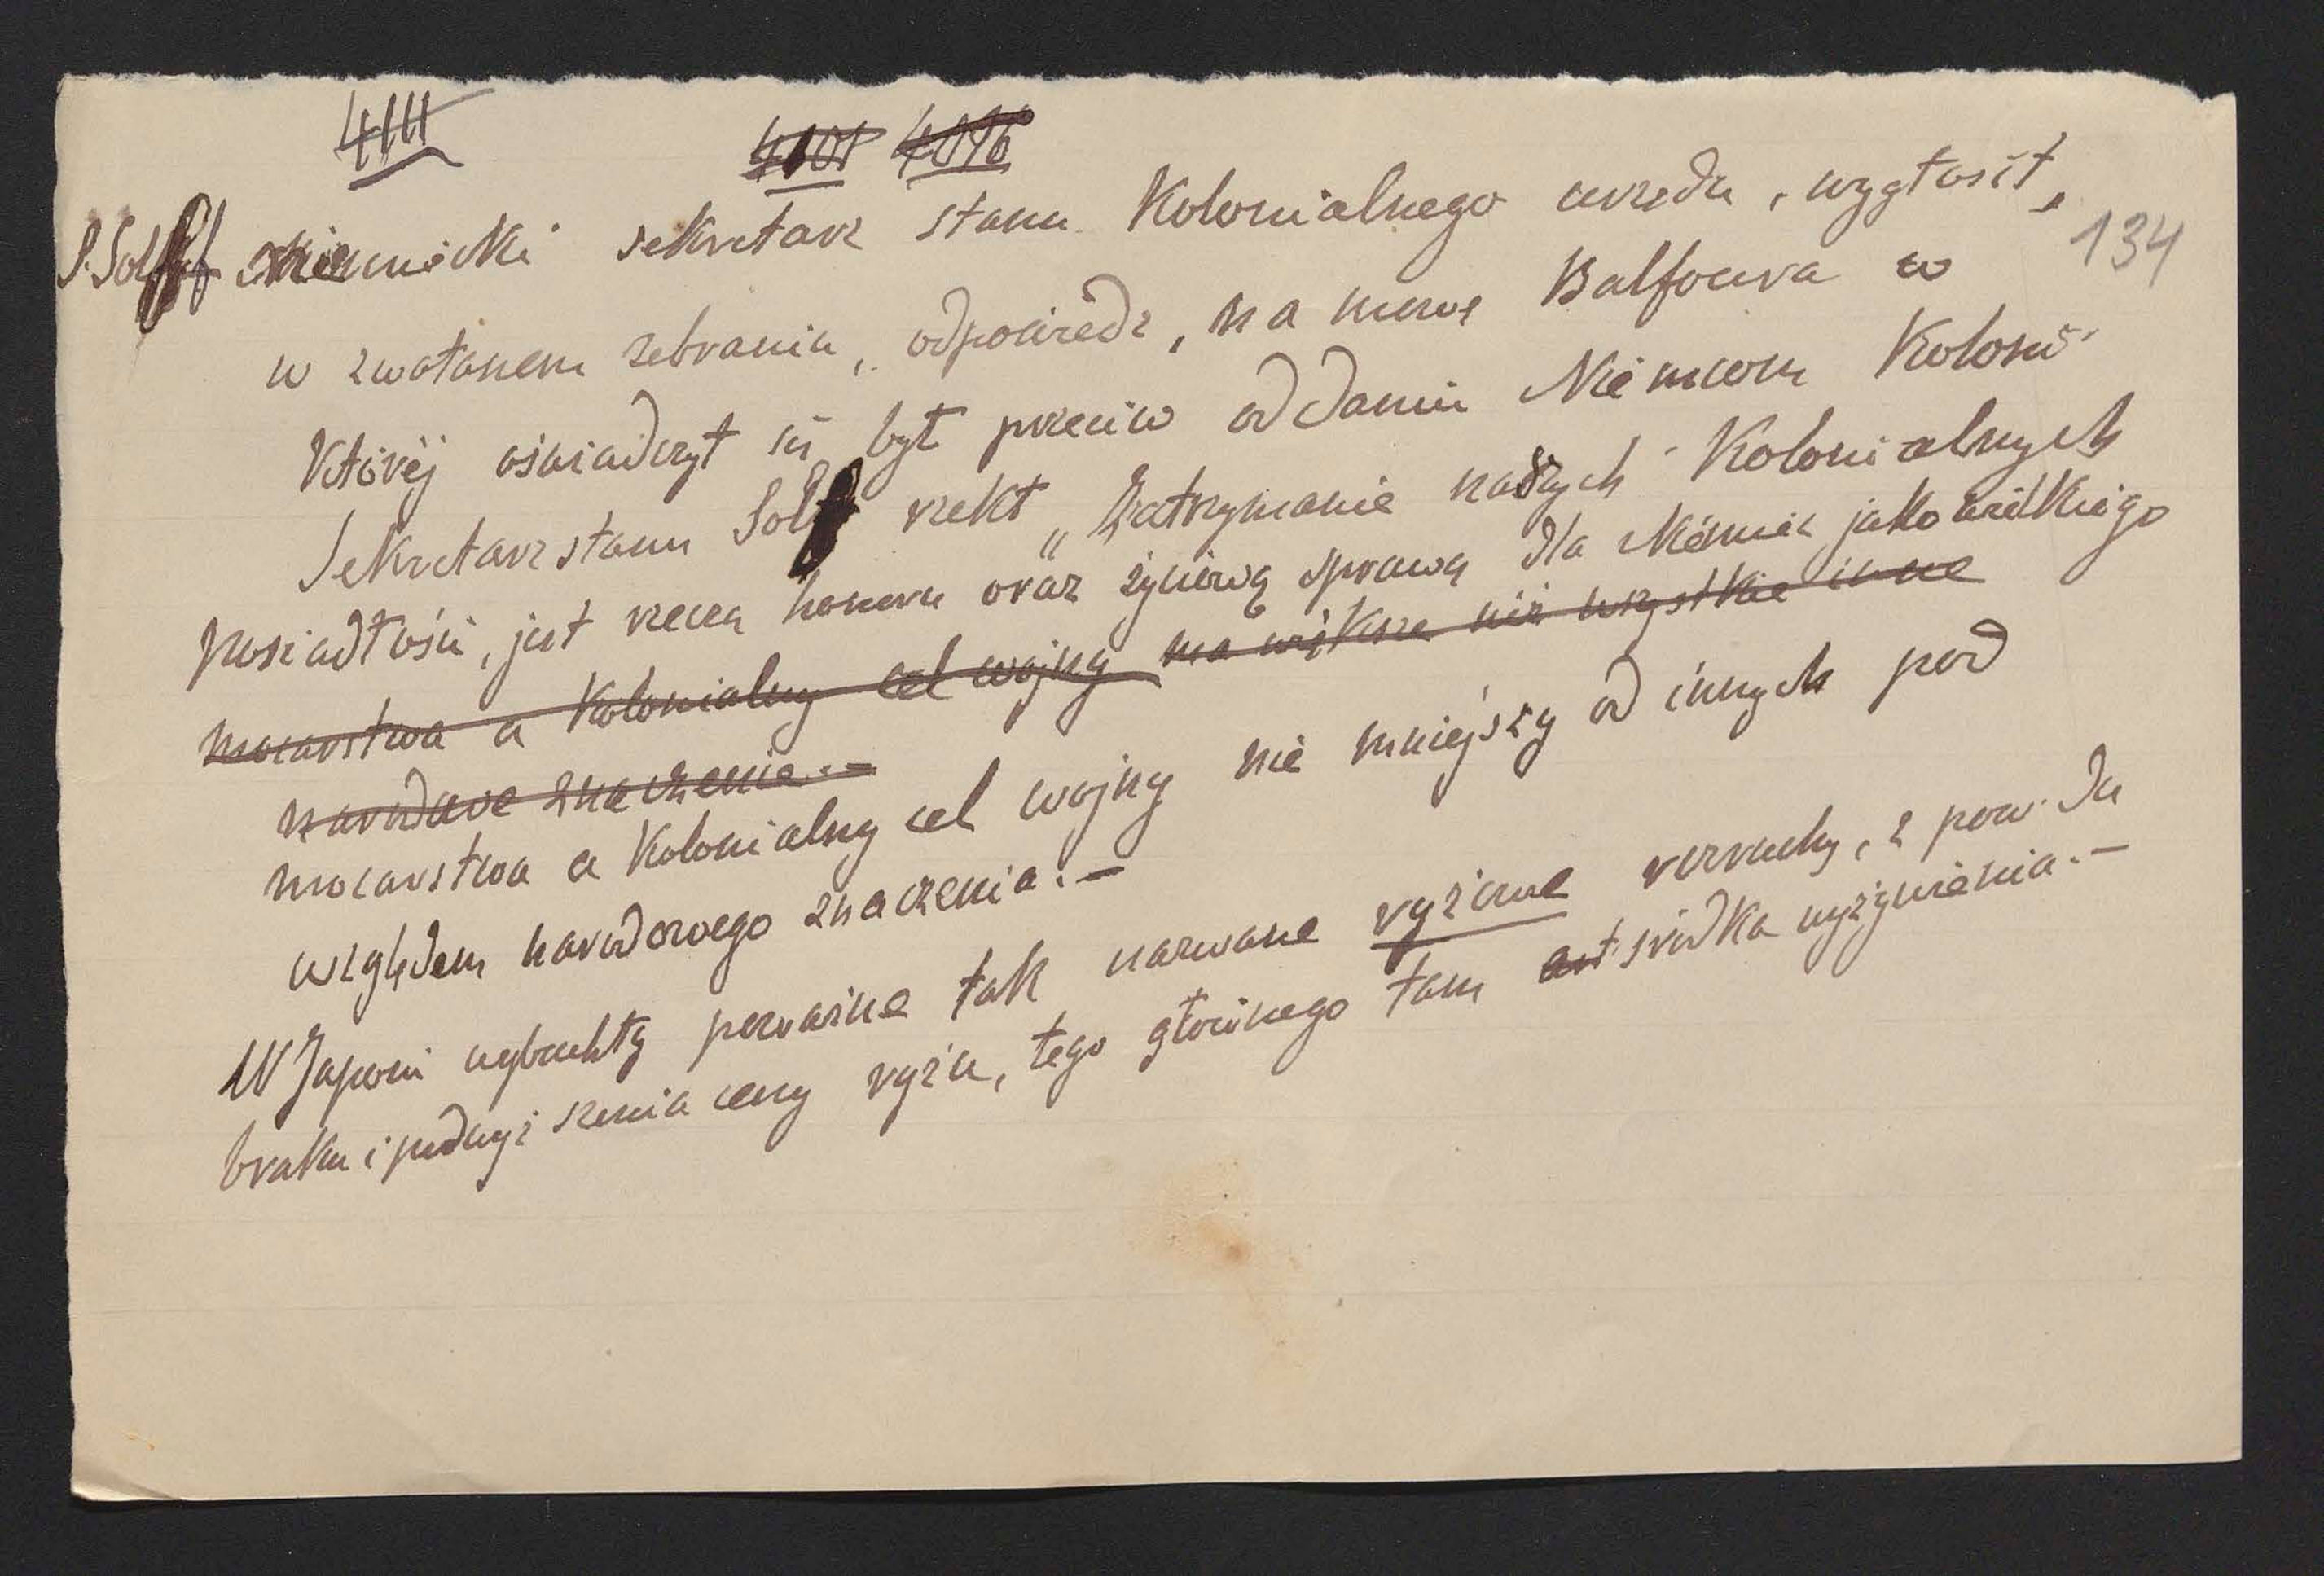 4111 4101 4096
P. Solf niemiecki sekretarz stanu Kolonialnego urzędu, wygłosił,
134
w zwołanem zebraniu, odpowiedz, na mowę Balfoura w
Którèj oświadczył się był przeciw oddaniu Niemcom Koloni
Sekretarz stanu Solf rzekł „Zatrzymanie naszych Kolonialnych
posiadłości, jest rzeczą honoru oraz życiową sprawą dla Niemiec jako wielkiego
mocarstwa a Kolonialny cel wojny ma większe niż wszystkie inne
narodowe znaczenie.-
mocarstwa a Kolonialny cel wojny nie mniejszy od innych pod
względem narodowego znaczenia.-
W Japoni wybuchły poważne tak nazwane ryżowe rozruchy, z powodu
braku i podwyższenia ceny ryżu, tego głównego tam środka wyżywienia.-